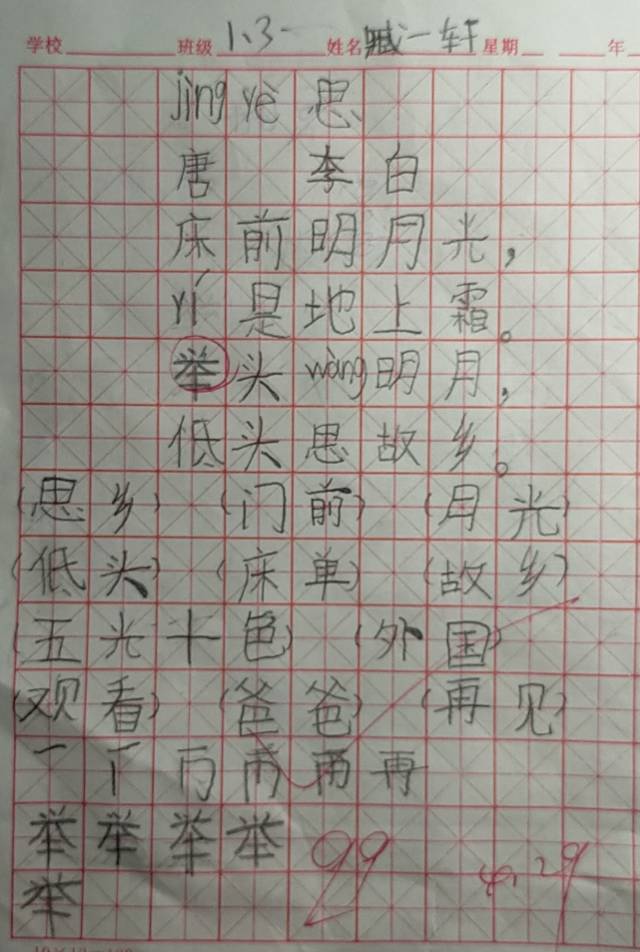 学校 班级 1.3 姓名 臧一轩 星期 年
jìng yè 思
唐 李白
床前明月光，
yí 是地上霜。
举头 wàng 明月，
低头思故乡。
(思乡) (门前) (月光)
(低头) (床单) (故乡)
(五光十色) (外国)
(观看) (爸爸) (再见)
再
举举举举
99 4.29
举